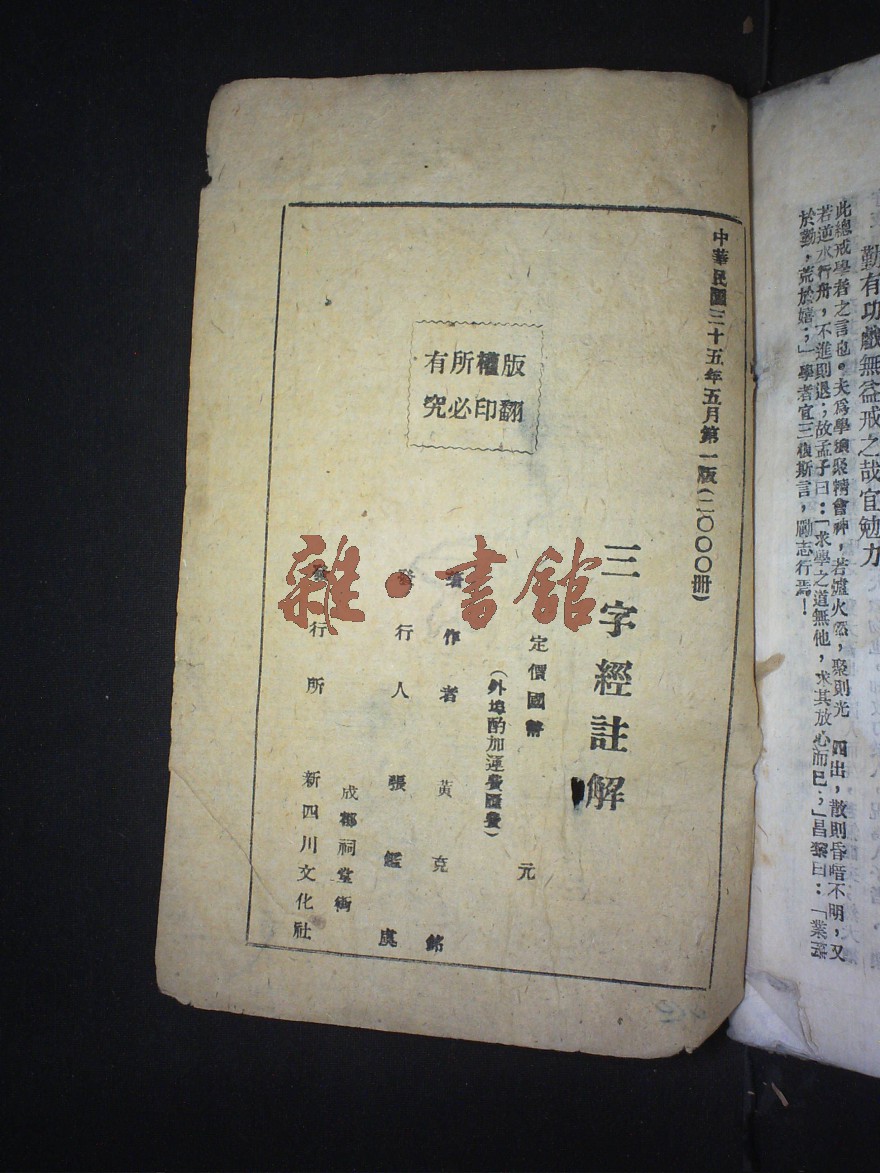 勤有功戲無益戒之哉宜勉力
此總戒學者之言也。夫爲學須聚精會神，若爐火然，聚則光　四出，散則昏暗不明，又
若逆水行舟，不進則退；故孟子曰：「求學之道無他，求其放心而已；」昌黎曰：「業精
於勤，荒於嬉；」學者宜三復斯言，勵志行焉！
中華民國三十五年五月第一版（二〇〇〇冊）
三字經註解
版權所有
翻印必究
定價國幣　元
（外埠酌加運費匯費）
著作者　黃克銘
發行人　張鑑虞
發行所　成都祠堂街
新四川文化社
雜·書館